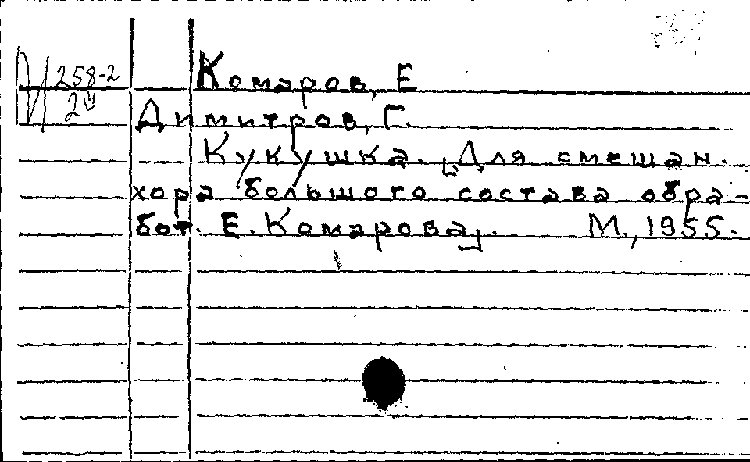 Комаров, Е
И 258-2
2
Димитров, Г.
Кукушка. [Для смешан.
хора большого состава обра-
бот. Е. Комарова]. М., 1955.